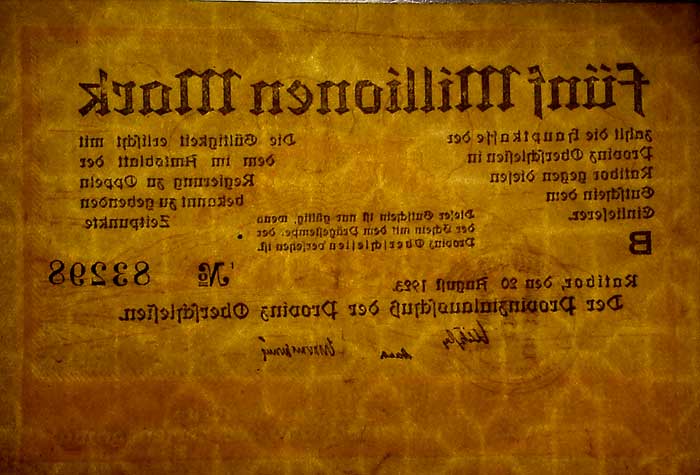 Fünf Millionen Mark
zahlt die Hauptkasse der
Provinz Oberschlesien in
Ratibor gegen diesen
Gutschein dem
Einlieferer.
Die Gültigkeit erlischt mit
dem im Amtsblatt der
Regierung zu Oppeln
bekannt zu gebenden
Zeitpunkte
Dieser Gutschein ist nur gültig, wenn
der Schein mit dem Prägestempel
Provinz Oberschlesien versehen ist.
B
№ 83298
Ratibor, den 20 August 1923.
Der Provinzialausschuß der Provinz Oberschlesien.